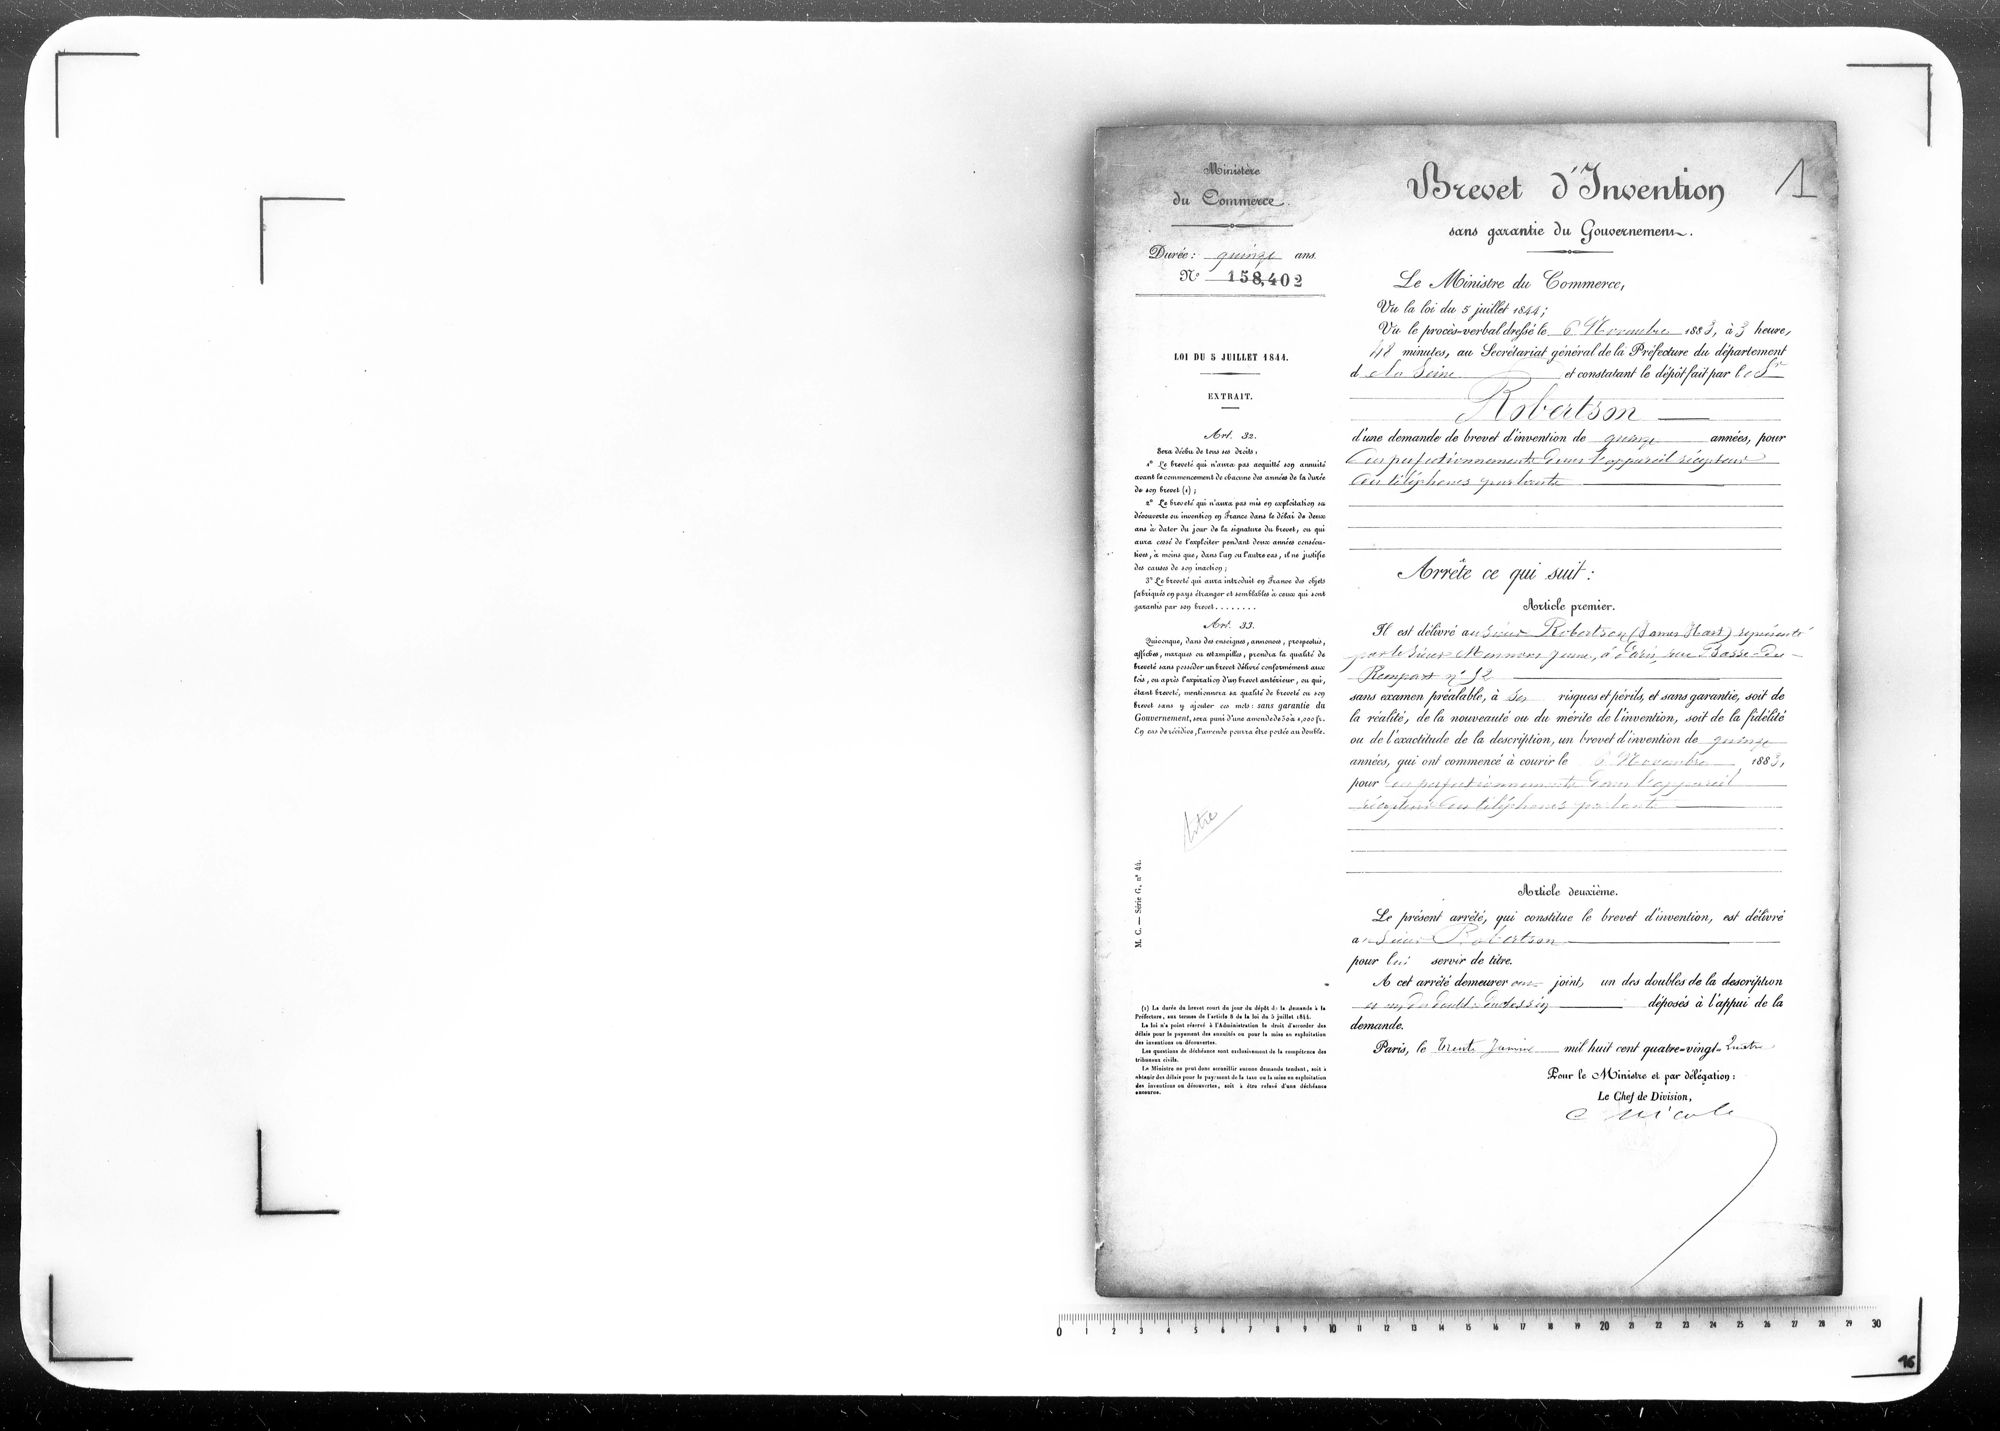 Ministère
du Commerce.
Durée : quinze ans.
N° 158,402
LOI DU 5 JUILLET 1844.
EXTRAIT.
Art. 32.
Sera déchu de tous ses droits :
1° Le breveté qui n'aura pas acquitté son annuité
avant le commencement de chacune des années de la durée
de son brevet (1) ;
2° Le breveté qui n'aura pas mis en exploitation sa
découverte ou invention en France dans le délai de deux
ans à dater du jour de la signature du brevet, ou qui
aura cessé de l'exploiter pendant deux années consécu-
tives, à moins que, dans l'un ou l'autre cas, il ne justifie
des causes de son inaction ;
3° Le breveté qui aura introduit en France des objets
fabriqués en pays étranger et semblables à ceux qui sont
garantis par son brevet . . . . . . . .
Art. 33.
Quiconque, dans des enseignes, annonces, prospectus,
affiches, marques ou estampilles, prendra la qualité de
breveté sans posséder un brevet délivré conformément aux
lois, ou après l'expiration d'un brevet antérieur, ou qui,
étant breveté, mentionnera sa qualité de breveté ou son
brevet sans y ajouter ces mots : sans garantie du
Gouvernement, sera puni d'une amende de 50 à 1,000 fr.
En cas de récidive, l'amende pourra être portée au double.
titre
M. C. — Série G, n° 44.
(1) La durée du brevet court du jour du dépôt de la demande à la
Préfecture, aux termes de l'article 8 de la loi du 5 juillet 1844.
La loi n'a point réservé à l'Administration le droit d'accorder des
délais pour le payement des annuités ou pour la mise en exploitation
des inventions ou découvertes.
Les questions de déchéance sont exclusivement de la compétence des
tribunaux civils.
Le Ministre ne peut donc accueillir aucune demande tendant, soit à
obtenir des délais pour le payement de la taxe ou la mise en exploitation
des inventions ou découvertes, soit à être relevé d'une déchéance
encourue.
Brevet d'Invention
1
sans garantie du Gouvernement.
Le Ministre du Commerce,
Vu la loi du 5 juillet 1844 ;
Vu le procès-verbal dressé le 6 Novembre 1883, à 3 heure,
48 minutes, au Secrétariat général de la Préfecture du département
de la Seine et constatant le dépôt fait par le Sr
Robertson
d'une demande de brevet d'invention de quinze années, pour
des perfectionnements dans l'appareil récepteur
des téléphones parlants
Arrête ce qui suit :
Article premier.
Il est délivré au sieur Robertson (James Hart) représenté
par le sieur Mennons jeune, à Paris, rue Basse-du-
Rempart n° 52
sans examen préalable, à ses risques et périls, et sans garantie, soit de
la réalité, de la nouveauté ou du mérite de l'invention, soit de la fidélité
ou de l'exactitude de la description, un brevet d'invention de quinze
années, qui ont commencé à courir le 6 Novembre 1883,
pour des perfectionnements dans l'appareil
récepteur des téléphones parlants
Article deuxième.
Le présent arrêté, qui constitue le brevet d'invention, est délivré
au sieur Robertson
pour lui servir de titre.
A cet arrêté demeurera joint, un des doubles de la description
et un des doubles du dessin déposés à l'appui de la
demande.
Paris, le trente Janvier mil huit cent quatre-vingt-quatre
Pour le Ministre et par délégation :
Le Chef de Division,
0 1 2 3 4 5 6 7 8 9 10 11 12 13 14 15 16 17 18 19 20 21 22 23 24 25 26 27 28 29 30
16